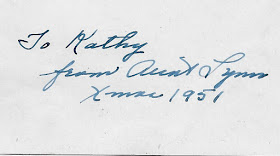 To Kathy
from Aunt Lynn
Xmas 1951